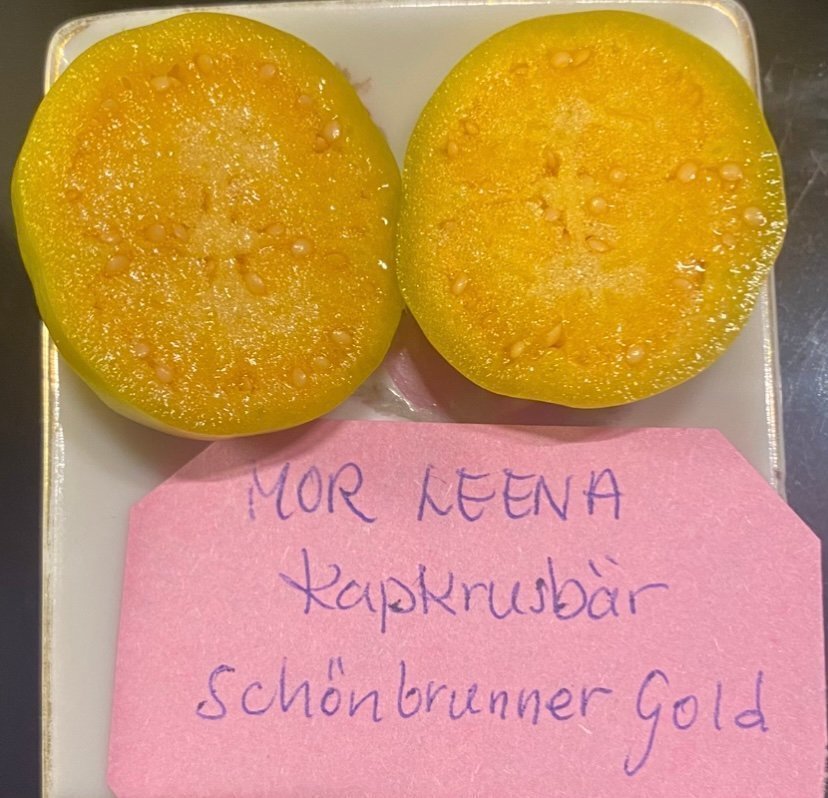 MOR LEENA
Kapkrusbär
Schönbrunner Gold